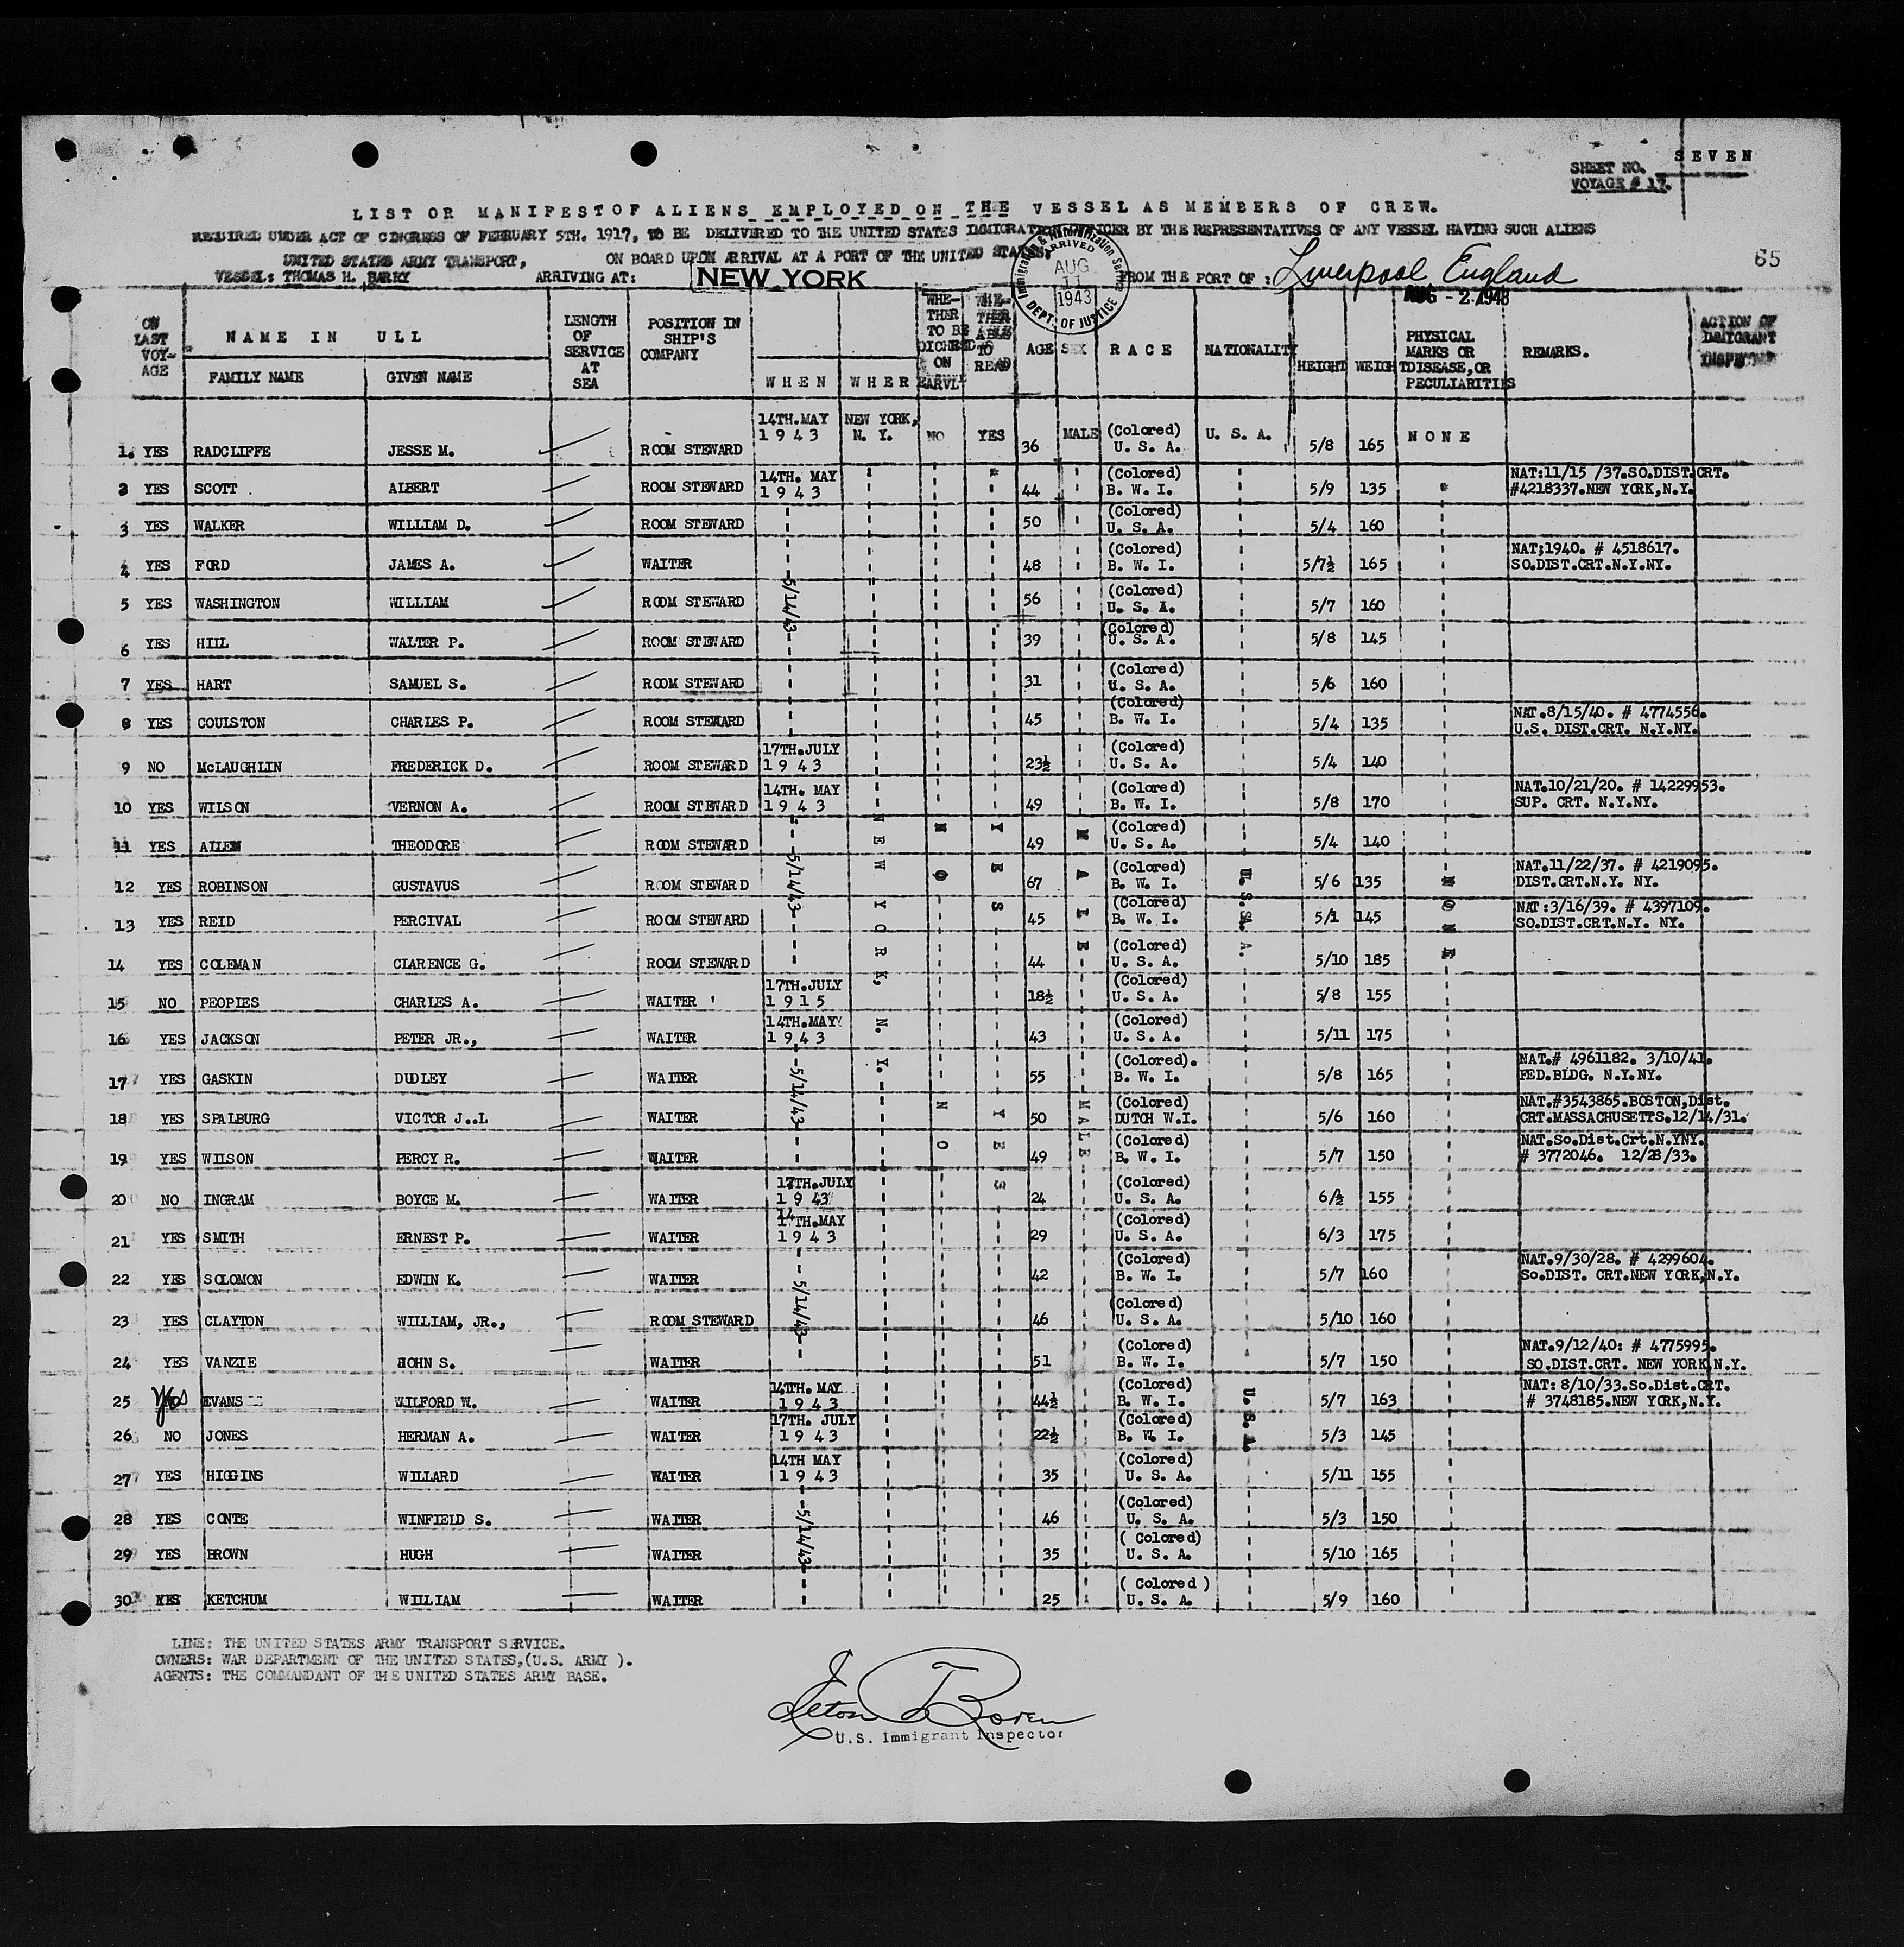 SEVEN
SHEET NO.
VOYAGE # 17.
LIST OR MANIFEST OF ALIENS EMPLOYED ON THE VESSEL AS MEMBERS OF CREW.
REQUIRED UNDER ACT OF CONGRESS OF FEBRUARY 5TH. 1917, TO BE DELIVERED TO THE UNITED STATES IMMIGRATION OFFICER BY THE REPRESENTATIVES OF ANY VESSEL HAVING SUCH ALIENS
UNITED STATES ARMY TRANSPORT, ON BOARD UPON ARRIVAL AT A PORT OF THE UNITED STATES.
65
VESSEL: THOMAS H. BARRY ARRIVING AT: NEW YORK FROM THE PORT OF : Liverpool England
AUG - 2 1943
Immigration & Naturalization Service ARRIVED AUG 11 1943 DEPT. OF JUSTICE
ON LAST VOY-AGE NAME IN ULL FAMILY NAME GIVEN NAME LENGTH OF SERVICE AT SEA POSITION IN SHIP'S COMPANY WHEN WHER WHE-THER TO BE DICHRED ON EARVL WHE-THER ABLE TO READ AGE SEX RACE NATIONALITY HEIGHT WEIGHT PHYSICAL MARKS OR DISEASE, OR PECULIARITIES REMARKS. ACTION OF IMMIGRANT INSPECTOR
1. YES RADCLIFFE JESSE M. ROOM STEWARD 14TH.MAY 1943 NEW YORK, N. Y. NO YES 36 MALE (Colored) U. S. A. U. S. A. 5/8 165 NONE
2 YES SCOTT ALBERT ROOM STEWARD 14TH. MAY 1943 44 (Colored) B. W. I. 5/9 135 NAT:11/15 /37.SO.DIST.CRT. #4218337.NEW YORK,N.Y.
3 YES WALKER WILLIAM D. ROOM STEWARD 50 (Colored) U. S. A. 5/4 160
4 YES FORD JAMES A. WAITER 48 (Colored) B. W. I. 5/7½ 165 NAT;1940. # 4518617. SO.DIST.CRT.N.Y.NY.
5 YES WASHINGTON WILLIAM ROOM STEWARD 5/14/43 56 (Colored) U. S. A. 5/7 160
6 YES HILL WALTER P. ROOM STEWARD 39 (Colored) U. S. A. 5/8 145
7 YES HART SAMUEL S. ROOM STEWARD 31 (Colored) U. S. A. 5/6 160
8 YES COULSTON CHARLES P. ROOM STEWARD 45 (Colored) B. W. I. 5/4 135 NAT.8/15/40. # 4774556. U.S. DIST.CRT. N.Y.NY.
9 NO McLAUGHLIN FREDERICK D. ROOM STEWARD 17TH.JULY 1943 23½ (Colored) U. S. A. 5/4 140
10 YES WILSON VERNON A. ROOM STEWARD 14TH. MAY 1943 49 (Colored) B. W. I. 5/8 170 NAT.10/21/20. # 14229953. SUP. CRT. N.Y.NY.
11 YES ALLEN THEODORE ROOM STEWARD 5/14/43 NEW YORK, N. Y. NO YES 49 MALE (Colored) U. S. A. U. S. A. 5/4 140 NONE
12 YES ROBINSON GUSTAVUS ROOM STEWARD 67 (Colored) B. W. I. 5/6 135 NAT.11/22/37. # 4219095. DIST.CRT.N.Y. NY.
13 YES REID PERCIVAL ROOM STEWARD 45 (Colored) B. W. I. 5/1 145 NAT:3/16/39. # 4397109. SO.DIST.CRT.N.Y. NY.
14 YES COLEMAN CLARENCE G. ROOM STEWARD 44 (Colored) U. S. A. 5/10 185
15 NO PEOPLES CHARLES A. WAITER ' 17TH.JULY 1915 18½ (Colored) U. S. A. 5/8 155
16 YES JACKSON PETER JR., WAITER 14TH.MAY 1943 43 (Colored) U. S. A. 5/11 175
17 YES GASKIN DUDLEY WAITER 5/14/43 55 (Colored). B. W. I. 5/8 165 NAT.# 4961182. 3/10/41. FED.BLDG. N.Y.NY.
18 YES SPALBURG VICTOR J..L WAITER NO YES 50 MALE (Colored) DUTCH W.I. 5/6 160 NAT.#3543865.BOSTON,Dist. CRT.MASSACHUSETTS.12/14/31.
19 YES WILSON PERCY R. WAITER 49 (Colored) B. W. I. 5/7 150 NAT.So.Dist.Crt.N.YNY. # 3772046. 12/28/33.
20 NO INGRAM BOYCE M. WAITER 17TH.JULY 1943 24 (Colored) U. S. A. 6/½ 155
21 YES SMITH ERNEST P. WAITER 14TH.MAY 1943 29 (Colored) U. S. A. 6/3 175
22 YES SOLOMON EDWIN K. WAITER 5/14/43 42 (Colored) B. W. I. 5/7 160 NAT.9/30/28. # 4299604. So.DIST. CRT.NEW YORK,N.Y.
23 YES CLAYTON WILLIAM, JR., ROOM STEWARD 46 (Colored) U. S. A. 5/10 160
24 YES VANZIE JOHN S. WAITER 51 (Colored) B. W. I. 5/7 150 NAT.9/12/40: # 4775995. SO.DIST.CRT. NEW YORK,N.Y.
25 Yes EVANS WILFORD W. WAITER 14TH. MAY 1943 44½ (Colored) B. W. I. U. S. A. 5/7 163 NAT: 8/10/33.So.Dist.CRT. # 3748185.NEW YORK,N.Y.
26 NO JONES HERMAN A. WAITER 17TH. JULY 1943 22½ (Colored) B. W. I. 5/3 145
27 YES HIGGINS WILLARD WAITER 14TH MAY 1943 35 (Colored) U. S. A. 5/11 155
28 YES CONTE WINFIELD S. WAITER 5/14/43 46 (Colored) U. S. A. 5/3 150
29 YES BROWN HUGH WAITER 35 ( Colored) U. S. A. 5/10 165
30 YES KETCHUM WILLIAM WAITER 25 ( Colored ) U. S. A. 5/9 160
LINE: THE UNITED STATES ARMY TRANSPORT SERVICE.
OWNERS: WAR DEPARTMENT OF THE UNITED STATES,(U.S. ARMY ).
AGENTS: THE COMMANDANT OF THE UNITED STATES ARMY BASE.
U.S. Immigrant Inspector